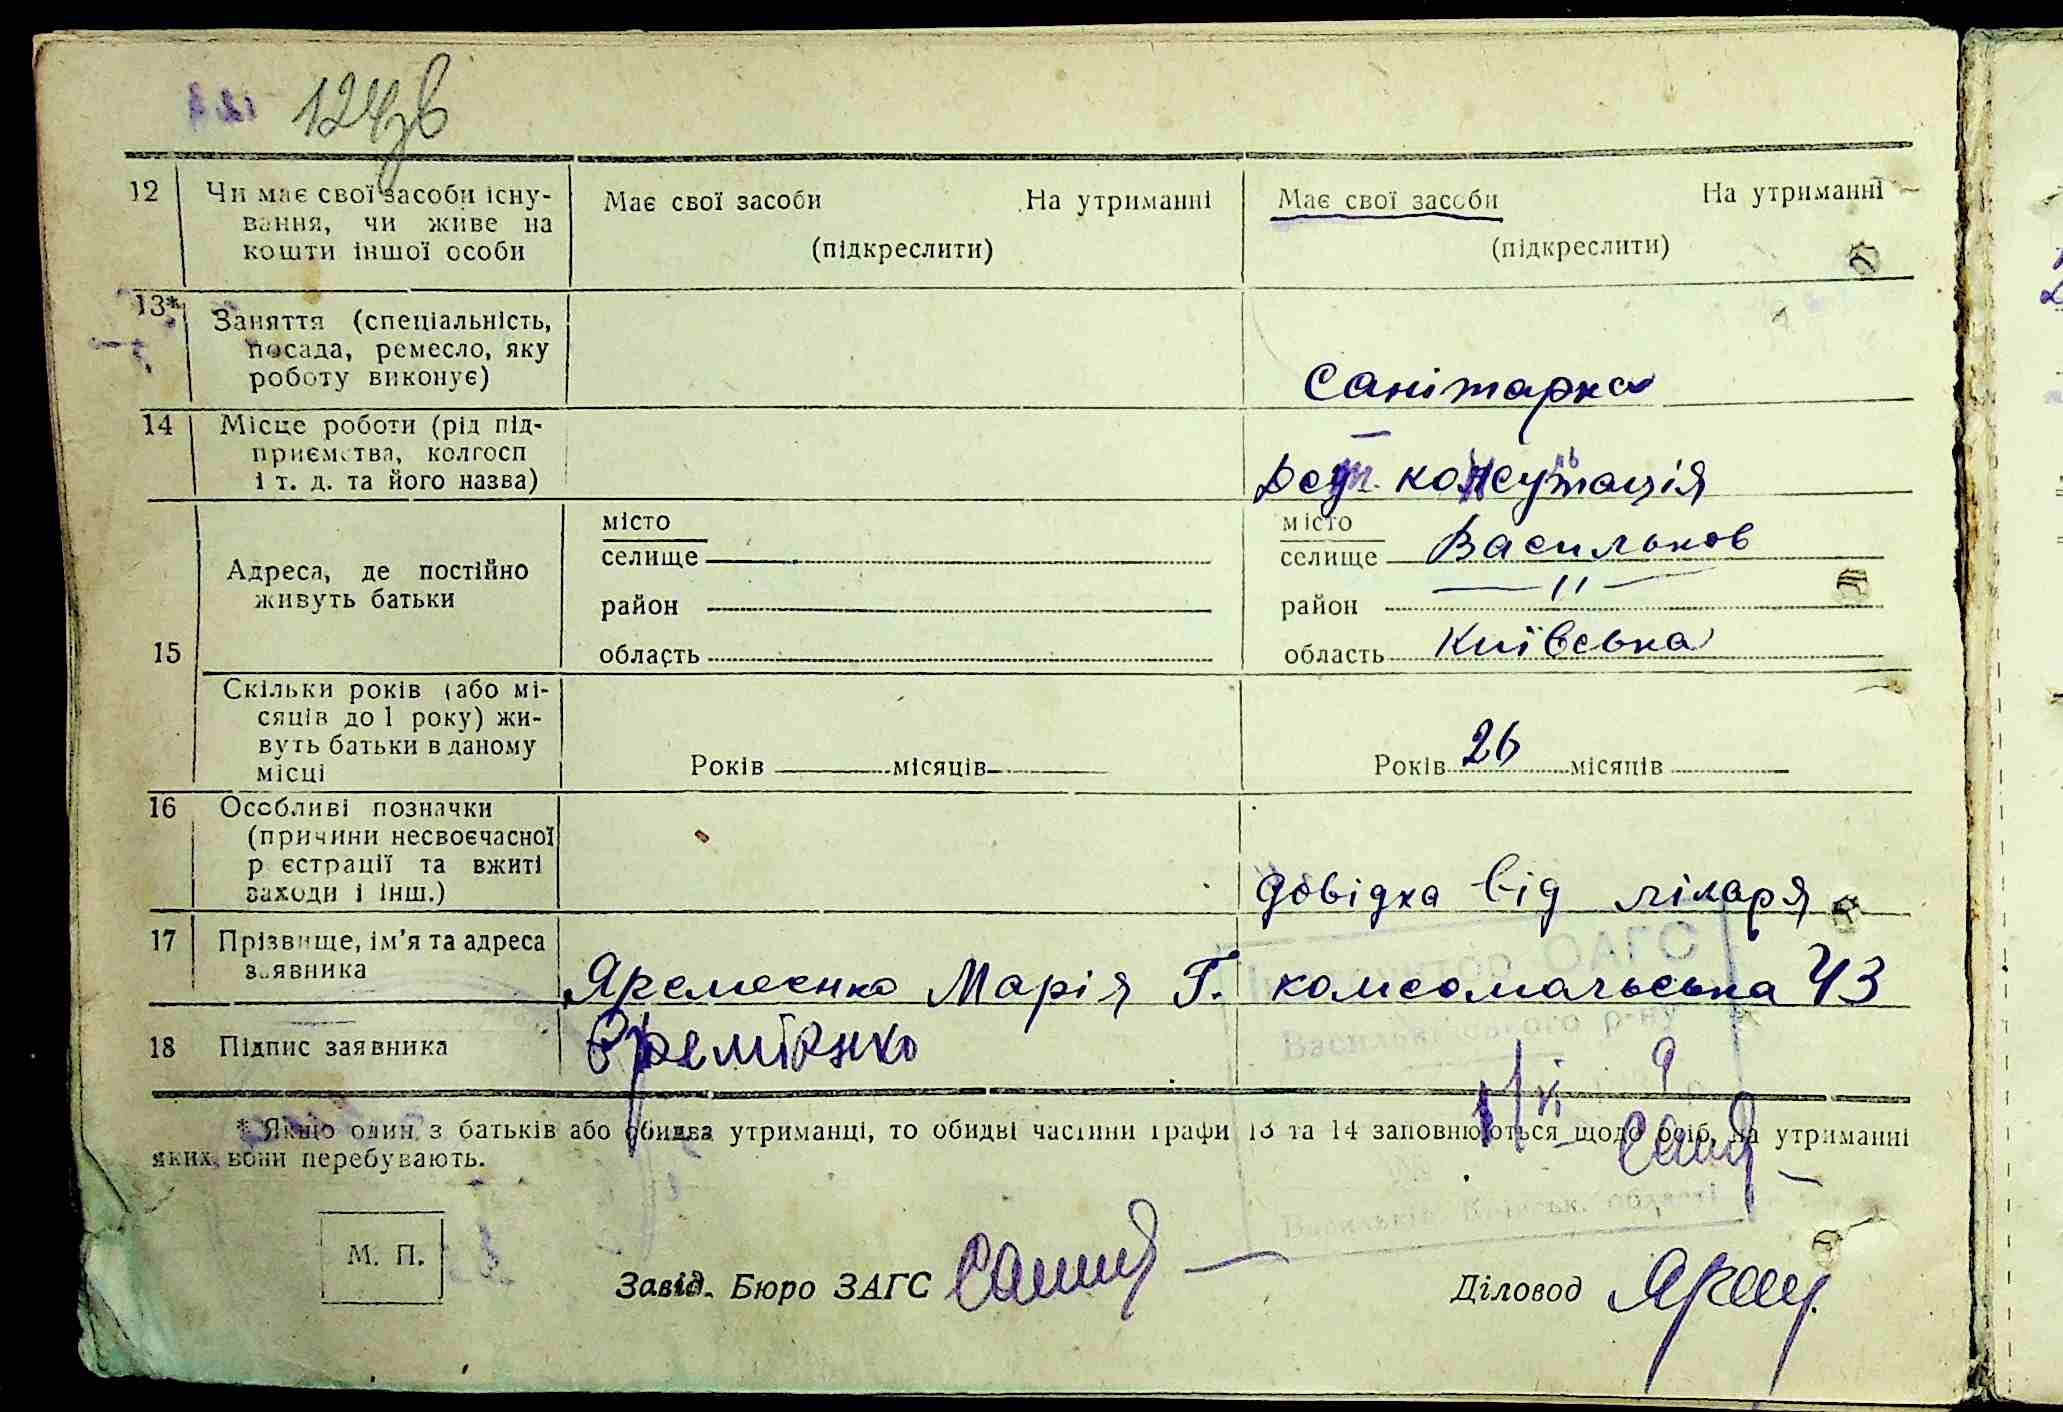 124зв
12 Чи має свої засоби існу- Має свої засоби На утриманні Має свої засоби На утриманні
вання, чи живе на (підкреслити) (підкреслити)
кошти іншої особи
13* Заняття (спеціальність,
посада, ремесло, яку
роботу виконує) Санітарка
14 Місце роботи (рід під-
приємства, колгосп
і т. д. та його назва) консультація
місто місто
селище селище Васильков
Адреса, де постійно
живуть батьки
район район —〃—
15 область область Київська
Скільки років (або мі-
сяців до 1 року) жи-
вуть батьки в даному
місці Років місяців Років 26 місяців
16 Особливі позначки
(причини несвоєчасної
р єстрації та вжиті
заходи і інш.) довідка від лікаря
17 Прізвище, ім'я та адреса
заявника Яремеенко Марія Г. комсомольська 43
18 Підпис заявника
Інспектор ОАГС
Васильківського р-ну
* Якщо один з батьків або обидва утриманці, то обидві частини графи 13 та 14 заповнюються щодо осіб, на утриманні
яких вони перебувають.
Васильків, Київськ. області
М. П.
Завід. Бюро ЗАГС Діловод